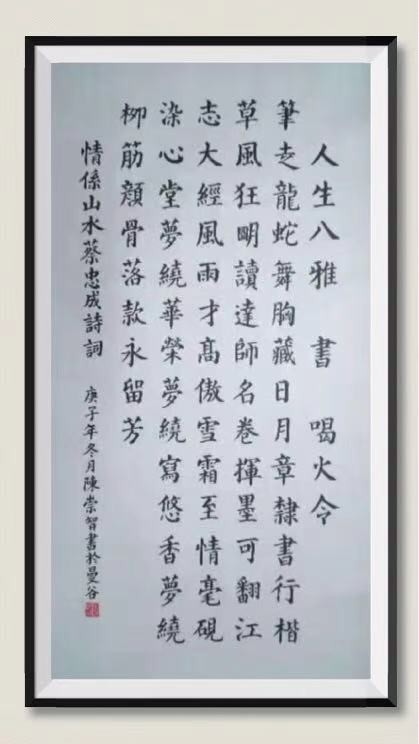 人生八雅 書 喝火令
筆走龍蛇舞胸藏日月章隸書行楷
草風狂眀讀達師名卷揮墨可翻江
志大經風雨才髙傲雪霜至情毫硯
染心堂夢繞華榮夢繞寫悠香夢繞
栁筋顏骨落款永留芳
情係山水蔡忠成詩詞 庚子年冬月陳崇智書於曼谷